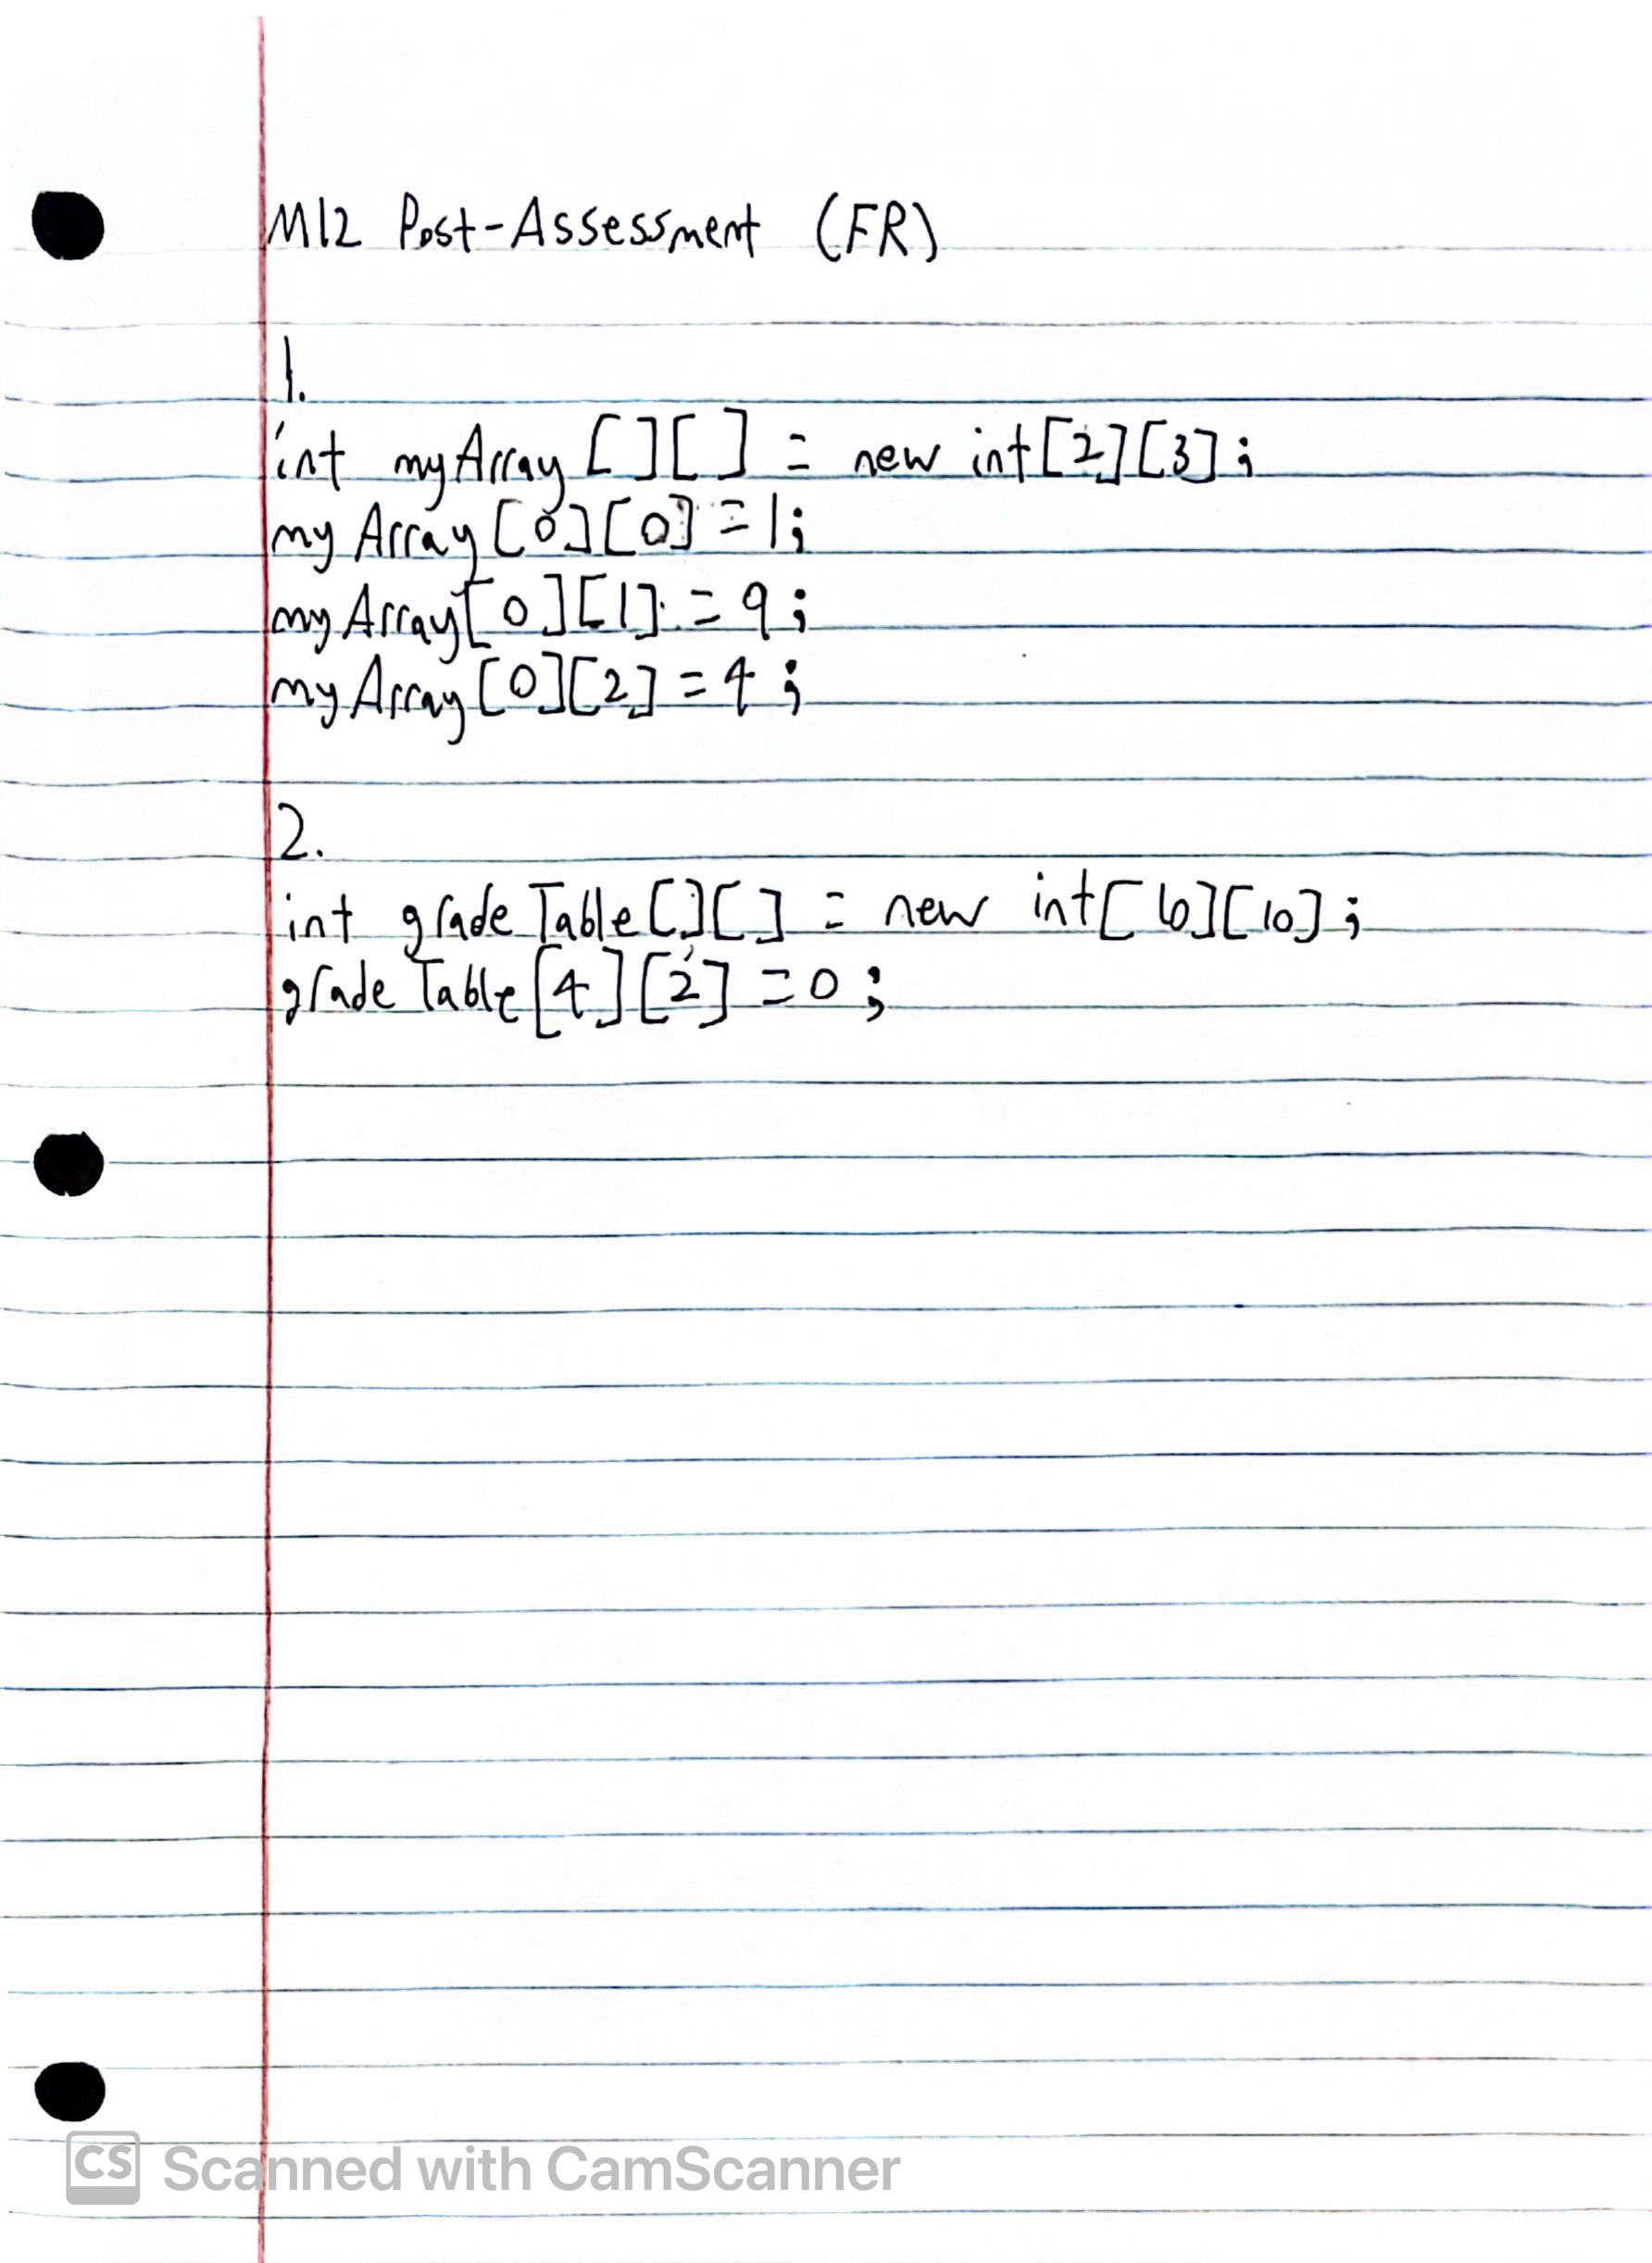 M12 Post-Assessment (FR)
1.
int myArray [][] = new int[2][3];
myArray[0][0] = 1;
myArray[0][1] = 9;
myArray[0][2] = 4;
2.
int gradeTable[][] = new int[6][10];
gradeTable[4][2] = 0;
CS Scanned with CamScanner